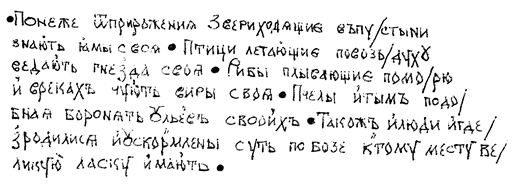 •Понеже ѿприрожения звериходящие въпу/стыни
знають ямы своя • Птици летающие повозъ/духу
ведають гнезда своя • Рибы плывающие помо/рю
и врекахъ чують виры своя • Пчелы итымъ подо/
бная боронять ульевъ своихъ • Такожъ илюди игде/
зродилися ивскормлены суть повозе ктому месту ве/
ликую ласку имають •